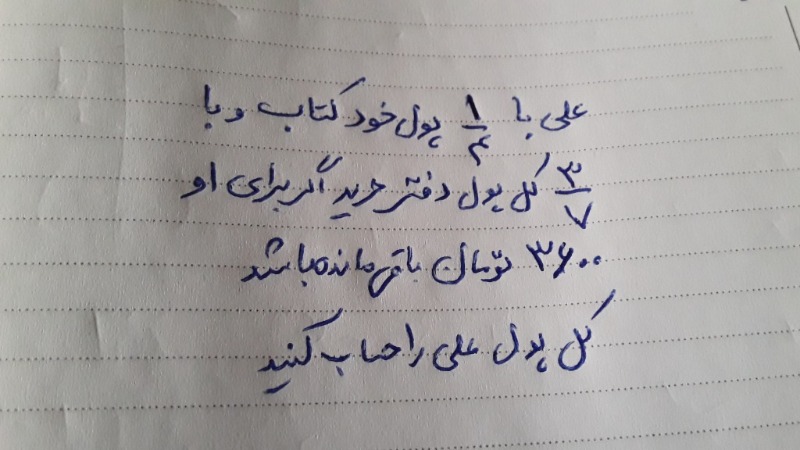 علی با ۱/۴ پول خود کتاب و با
۳/۷ کل پول دفتر خرید اگر برای او
۳۶۰۰ تومان باقی مانده باشد
کل پول علی را حساب کنید